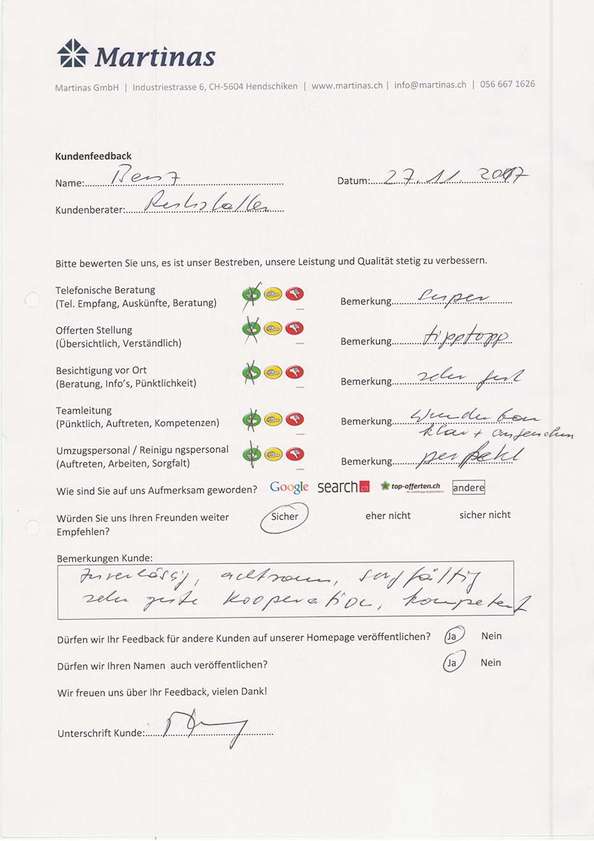 Martinas
Martinas GmbH | Industriestrasse 6, CH-5604 Hendschiken | www.martinas.ch | info@martinas.ch | 056 667 1626
Kundenfeedback
Name: Benz Datum: 27.11.2017
Kundenberater:
Bitte bewerten Sie uns, es ist unser Bestreben, unsere Leistung und Qualität stetig zu verbessern.
Telefonische Beratung
(Tel. Empfang, Auskünfte, Beratung) Bemerkung super
Offerten Stellung
(Übersichtlich, Verständlich) Bemerkung tipptopp
Besichtigung vor Ort
(Beratung, Info's, Pünktlichkeit) Bemerkung sehr gut
Teamleitung
(Pünktlich, Auftreten, Kompetenzen) Bemerkung wunderbar
klar + angenehm
Umzugspersonal / Reinigu ngspersonal
(Auftreten, Arbeiten, Sorgfalt) Bemerkung perfekt
Wie sind Sie auf uns Aufmerksam geworden? Google search.ch top-offerten.ch andere
Würden Sie uns Ihren Freunden weiter Sicher eher nicht sicher nicht
Empfehlen?
Bemerkungen Kunde:
zuverlässig, achtsam, sorgfältig
sehr gute Kooperation, kompetent
Dürfen wir Ihr Feedback für andere Kunden auf unserer Homepage veröffentlichen? Ja Nein
Dürfen wir Ihren Namen auch veröffentlichen? Ja Nein
Wir freuen uns über Ihr Feedback, vielen Dank!
Unterschrift Kunde: